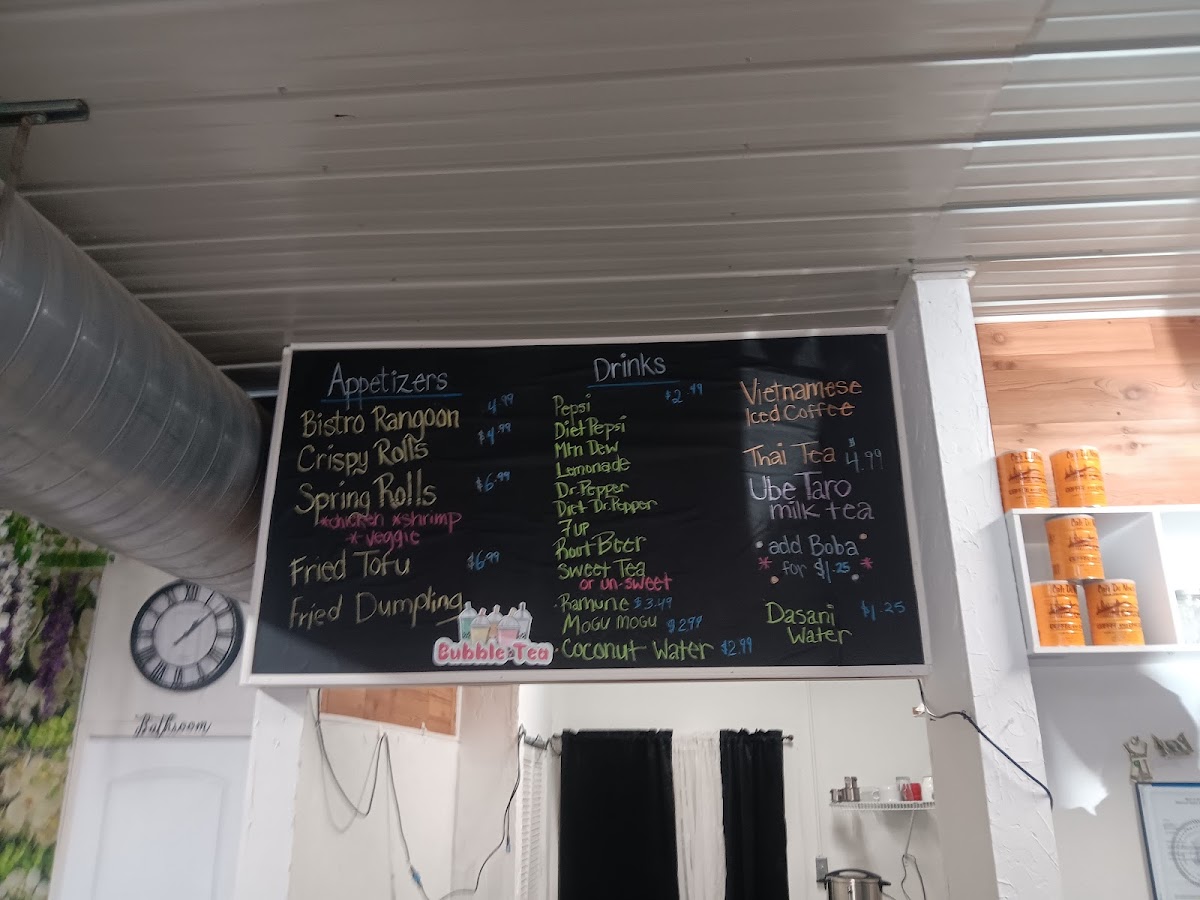 Appetizers
Bistro Rangoon 4.99
Crispy Rolls $4.99
Spring Rolls $6.99
*chicken *shrimp
* veggie
Fried Tofu $6.99
Fried Dumpling
Bubble Tea
Drinks
Pepsi $2.49
Diet Pepsi
Mtn Dew
Lemonade
Dr. Pepper
Diet Dr. Pepper
7up
Root Beer
Sweet Tea
or un-sweet
Ramune $3.49
Mogu Mogu $2.99
Coconut Water $2.99
Vietnamese
Iced Coffee
Thai Tea $4.99
Ube Taro
milk tea
add Boba
* for $1.25 *
Dasani $1.25
Water
Bathroom